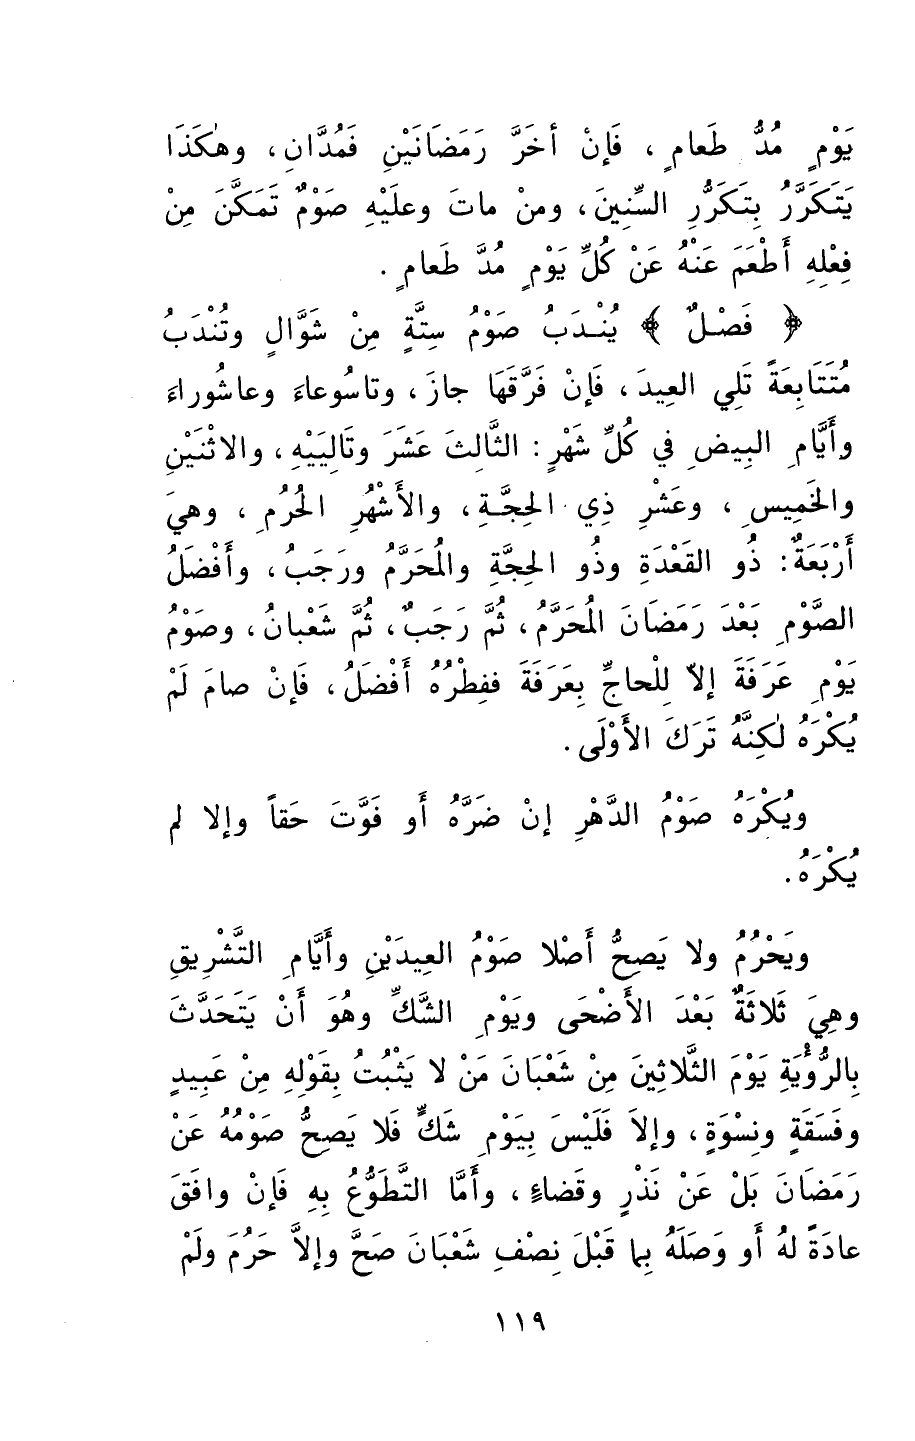 يَوْمٍ مُدُّ طَعامٍ ، فَإنْ أخَرَّ رَمَضَانَيْنِ فَمُدَّانِ ، وهٰكَذَا
يَتَكَرَّرُ بِتَكَرُّرِ السِّنِينَ ، ومنْ ماتَ وعلَيْهِ صَوْمٌ تَمَكَّنَ مِنْ
فِعْلِهِ أَطْعَمَ عَنْهُ عَنْ كُلِّ يَوْمٍ مُدَّ طَعامٍ .
﴿ فَصْـلٌ ﴾ يُنْـدَبُ صَوْمُ سِتَّةٍ مِنْ شَوَّالٍ وتُنْدَبُ
مُتَتَابِعَةً تَلِي العِيدَ ، فَإنْ فَرَّقَهَا جازَ ، وتاسُوعاءَ وعاشُوراءَ
وأَيَّامِ البِيضِ في كُلِّ شَهْرٍ : الثَّالِثَ عَشَرَ وتَالِيَيْهِ ، والاثْنَيْنِ
والخَمِيسِ ، وعَشْرِ ذِي الحِجَّـةِ ، والأَشْهُرِ الحُرُمِ ، وهيَ
أَرْبَعَةٌ : ذُو القَعْدَةِ وذُو الحِجَّةِ والمُحَرَّمُ ورَجَبُ ، وأَفْضَلُ
الصَّوْمِ بَعْدَ رَمَضَانَ المُحَرَّمُ ، ثُمَّ رَجَبٌ ، ثُمَّ شَعْبانُ ، وصَوْمُ
يَوْمِ عَرَفَةَ إلاّ لِلْحاجِّ بِعَرَفَةَ ففِطْرُهُ أَفْضَلُ ، فَإنْ صامَ لَمْ
يُكْرَهُ لٰكِنَّهُ تَرَكَ الأَوْلَى .
ويُكْرَهُ صَوْمُ الدَّهْرِ إنْ ضَرَّهُ أَو فَوَّتَ حَقاً وإلا لم
يُكْرَهُ .
ويَحْرُمُ ولا يَصِحُّ أَصْلا صَوْمُ العِيدَيْنِ وأَيَّامِ التَّشْرِيقِ
وهِيَ ثَلاثَةٌ بَعْدَ الأَضْحَى ويَوْمِ الشَّكِّ وهُوَ أَنْ يَتَحَدَّثَ
بِالرُّؤْيَةِ يَوْمَ الثَّلاثِينَ مِنْ شَعْبَانَ مَنْ لا يَثْبُتُ بِقَوْلِهِ مِنْ عَبِيدٍ
وفَسَقَةٍ ونِسْوَةٍ ، وإلاَ فَلَيْسَ بِيَوْمِ شَكٍّ فَلا يَصِحُّ صَوْمُهُ عَنْ
رَمَضَانَ بَلْ عَنْ نَذْرٍ وقَضاءٍ ، وأَمَّا التَّطَوُّعُ بِهِ فَإنْ وافَقَ
عادَةً لهُ أَو وَصَلَهُ بِما قَبْلَ نِصْفِ شَعْبَانَ صَحَّ وإلاَّ حَرُمَ ولَمْ
١١٩